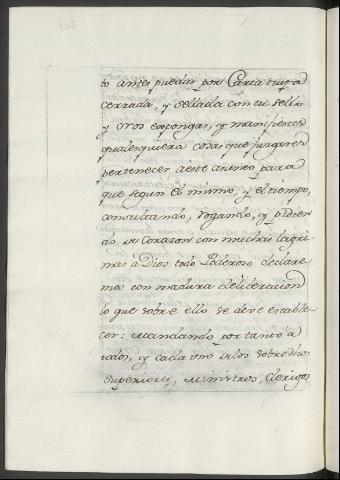 to antes puedas por Carta tuya
cerrada, y sellada con tu sello
y Nos expongas, y manifiestes
qualesquiera cosas que juzgares
pertenecer à este asunto para
que segun el mismo, y el tiempo,
consultando, rogando, y pidien
do de corazon con muchas lagri
mas à Dios todo Poderoso declare
mos con madura deliberacion
lo que sobre ello se deve estable
cer: Mandando por tanto à
todos, y cada uno de los sobredhos
Superiores, Ministros, Clerigos